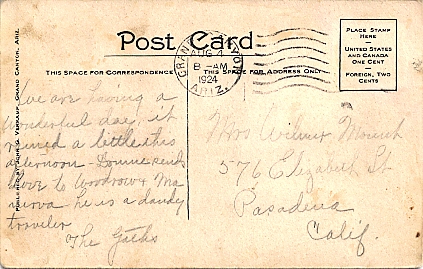 Post Card
PLACE STAMP
HERE
UNITED STATES
AND CANADA
ONE CENT
FOREIGN, TWO
CENTS
GRAND CANYON
AUG 4
8-AM
1924
ARIZ.
THIS SPACE FOR CORRESPONDENCE
THIS SPACE FOR ADDRESS ONLY
PUBLISHED BY JOHN G. VERKAMP, GRAND CANYON, ARIZ.
We are having a
wonderful day, it
rained a little this
afternoon - Donnie sends
love to Woodrow & Ma
nerva he is a dandy
traveler
The Goths
Mrs Wilmer
576 Elizabeth St
Pasadena
Calif.